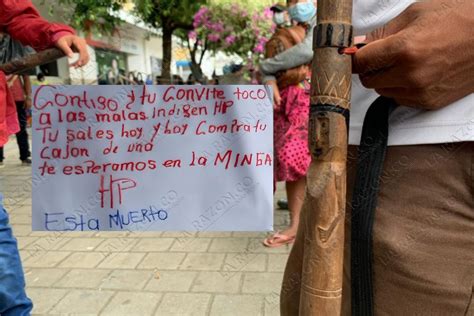 Contigo y tu Convite toco
a las malas Indigen HP
Tu sales hoy y hoy Compra tu
Cajon de una
te esperamos en la MINGA
HP
Esta MUERTO
LARAZON.CO